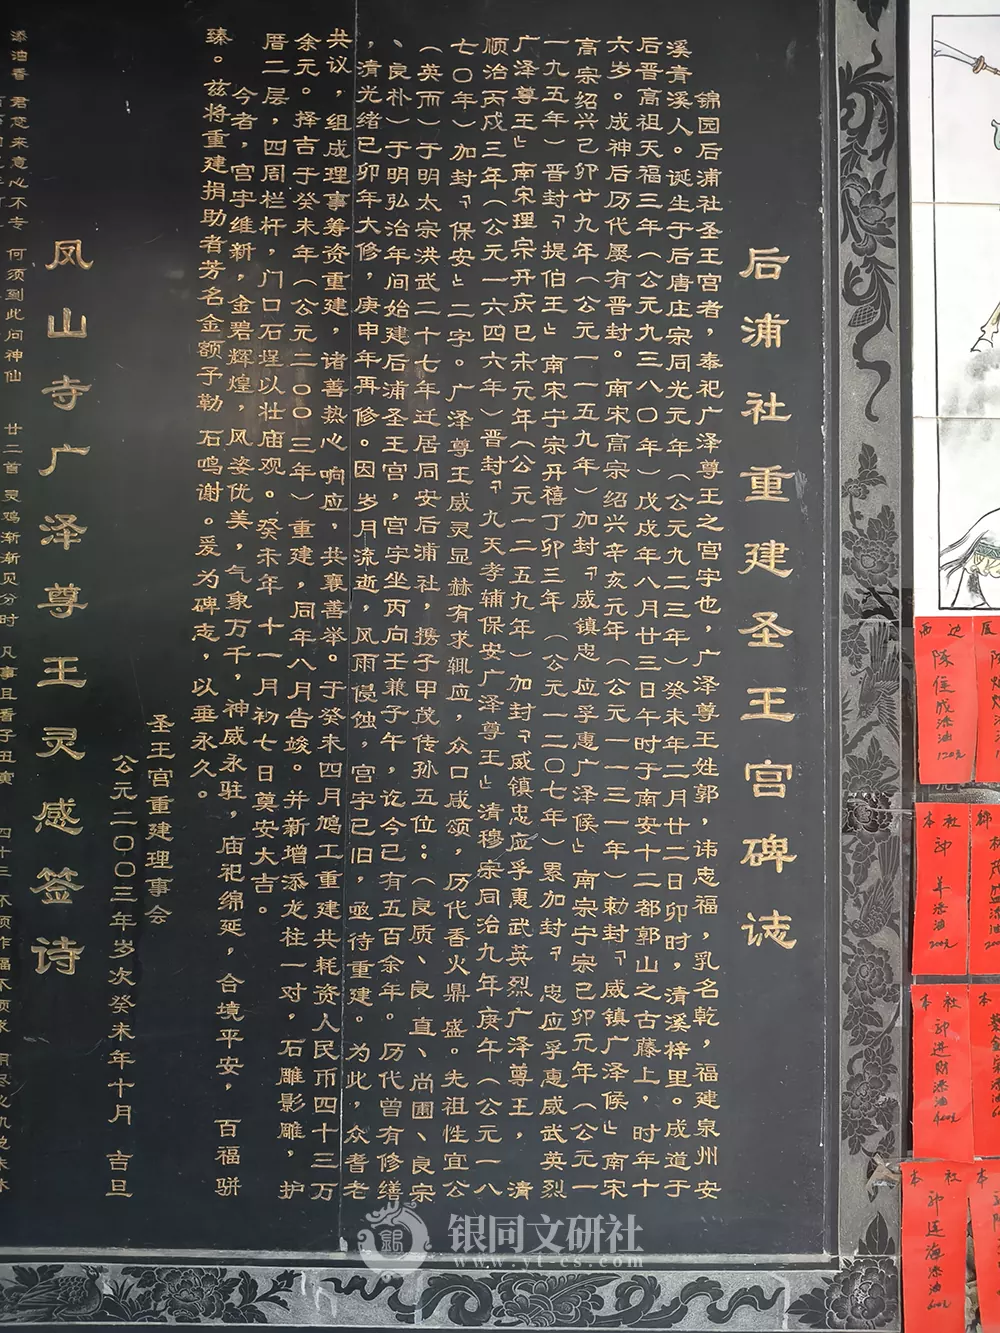 后浦社重建圣王宫碑志
锦园后浦社圣王宫者,奉祀广泽尊王之宫宇也,广泽尊王姓郭,讳忠福,乳名乾,福建泉州安
溪青溪人。诞生于后唐庄宗同光元年(公元九二三年)癸未年二月廿二日卯时,清溪梓里。成道于
后晋高祖天福三年(公元九三八〇年)戊戌年八月廿三日午时于南安十二都郭山之古藤上,时年十
六岁。成神后历代屡有晋封。南宋高宗绍兴辛亥元年(公元一一三一年)勅封『威镇广泽侯』南宋
高宗绍兴己卯廿九年(公元一一五九年)加封『威镇忠应孚惠广泽侯』南宗宁宗己卯元年(公元一
一九五年)晋封『提伯王』南宋宁宗开禧丁卯三年(公元一二〇七年)累加封『忠应孚惠威武英烈
广泽尊王』南宋理宗开庆巳未元年(公元一二五九年)加封『威镇忠应孚惠武英烈广泽尊王,清
顺治丙戌三年(公元一六四六年)晋封『九天孝辅保安广泽尊王』清穆宗同治九年庚午(公元一八
七〇年)加封『保安』二字。广泽尊王威灵显赫有求辄应,众口咸颂,历代香火鼎盛。先祖性宜公
(英而)于明太宗洪武二十七年迁居同安后浦社,携子甲茂传孙五位:(良质、良直、尚圃、良宗
、良朴)于明弘治年间始建后浦圣王宫,宫宇坐丙向壬兼子午,讫今已有五百余年。历代曾有修缮
,清光绪己卯年大修,庚申年再修。因岁月流逝,风雨侵蚀,宫宇已旧,亟待重建。为此,众耆老
共议,组成理事筹资重建,诸善热心响应,共襄善举。于癸未四月鸠工重建共耗资人民币四十三万
余元。择吉于癸未年(公元二〇〇三年)重建,同年八月告竣。并新增添龙柱一对,石雕影雕,护
厝二层,四周栏杆,门口石埕以壮庙观。癸未年十一月初七日奠安大吉。
今者,宫宇维新,金碧辉煌,风姿优美,气象万千,神威永驻,庙祀绵延,合境平安,百福骈
臻。兹将重建捐助者芳名金额予勒石鸣谢。爰为碑志,以垂永久。
圣王宫重建理事会
公元二〇〇三年岁次癸未年十月 吉旦
凤山寺广泽尊王灵感签诗
添油香 君楚来意心不专 何须到此问神仙 廿二首 灵鸡渐渐见分时 凡事且看子丑寅
西边
陈
添油
120元
本社
添油
200元
本社
进财添油
400元
本社
莲海添油
600元
银同文研社
www.yt-cs.com